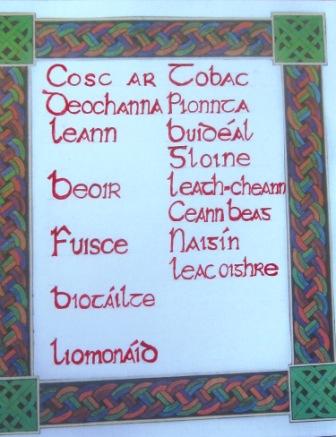 Cosc ar Tobac
Deochanna Pionnta
Leann Buidéal
Gloine
Beoir Leath-cheann
Ceann beag
Fuisce Naigín
Leac oighre
Biotáilte
Liomonáid